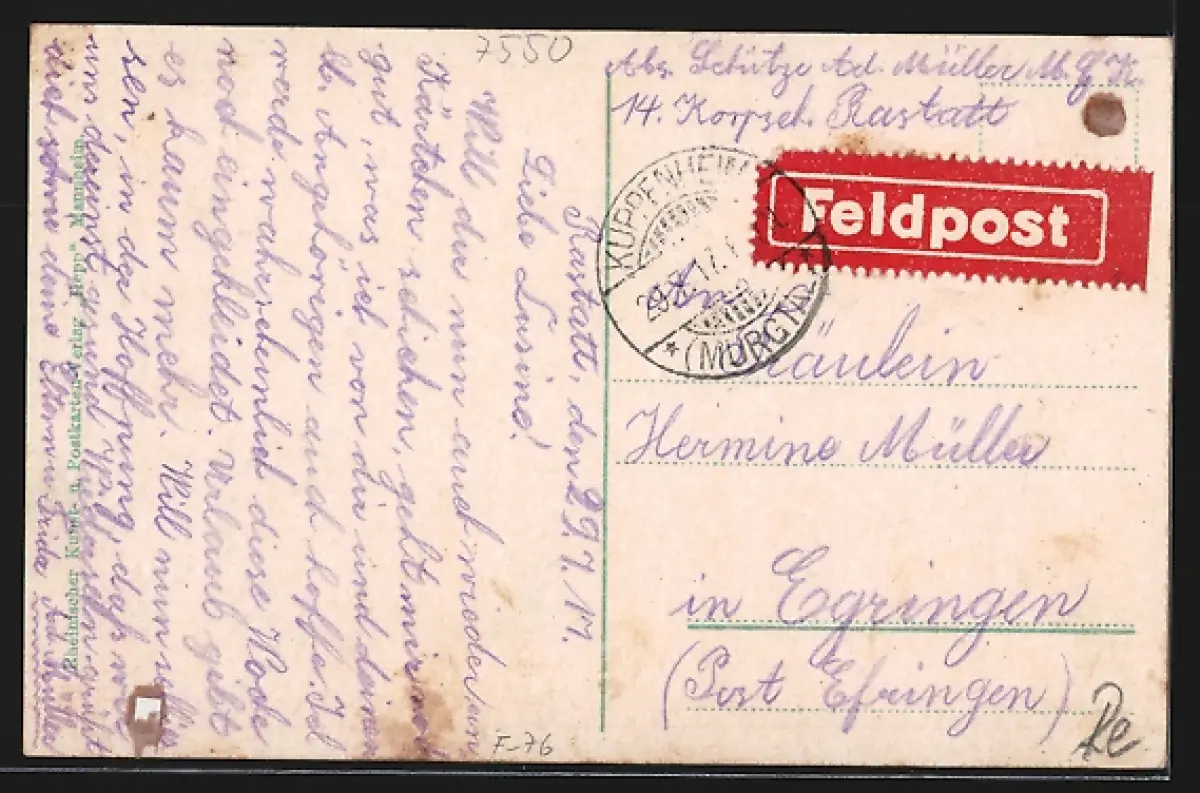 7550
Abs. Schütze Ad. Müller M.G.K.
14. Korpsch. Rastatt
Feldpost
KUPPENHEIM
(MURGTAL)
An
Fräulein
Hermine Müller
in Egringen
(Post Efringen)
Re
F-76
Rastatt, den 29.7.17.
Liebe Lusine!
Will dir nun auch wieder ein
Kärtchen schicken, geht mir noch
gut, was ich von dir und deinen
lb. Angehörigen auch hoffe. Ich
werde wahrscheinlich diese Woche
noch eingekleidet. Urlaub gibt
es kaum mehr. Will nun
sen, in der Hoffnung, daß wir
uns dereinst gesund wiedersehen
deine Eltern u. Frida Ad. Müller
Rheinischer Kunst- u. Postkarten-Verlag „Hepp“ Mannheim